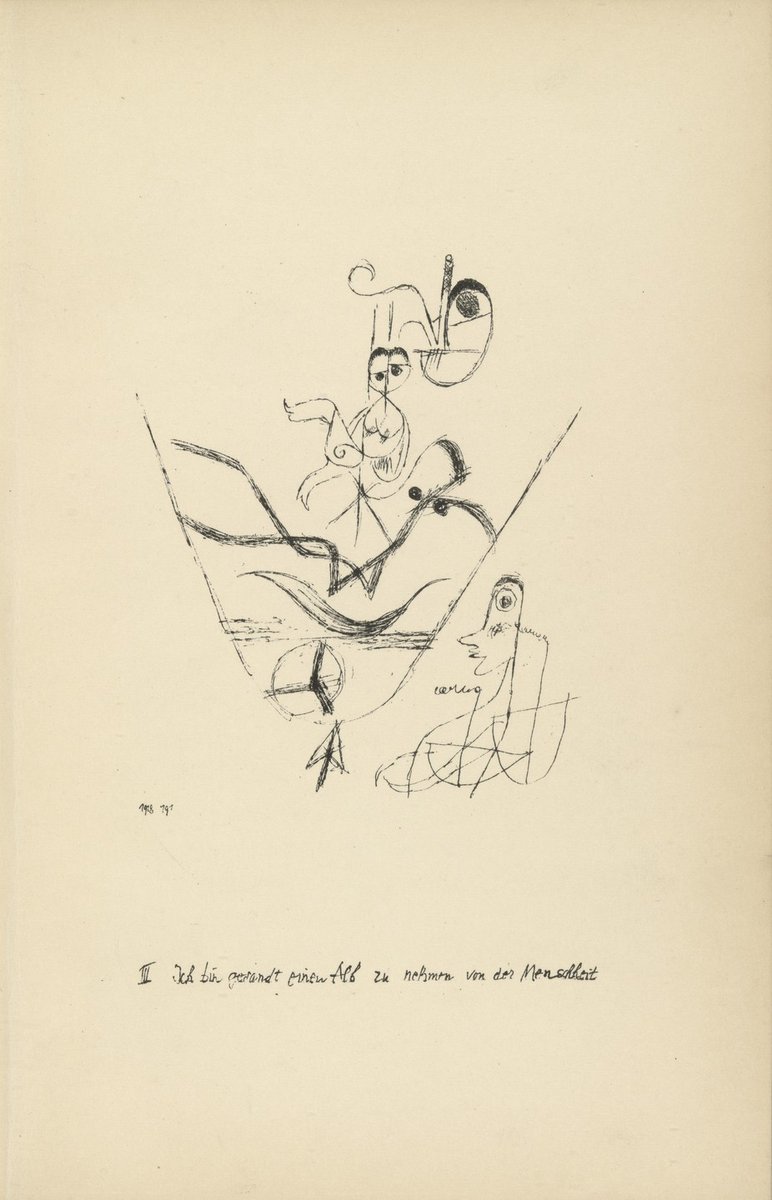 1918 191
III Ich bin gesandt einen Alb zu nehmen von der Menschheit